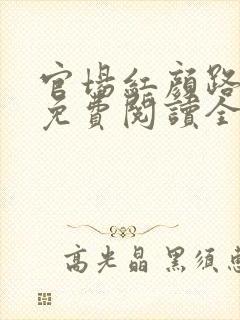 官場紅顏路
免費閱讀全
高光晶 黑須惠